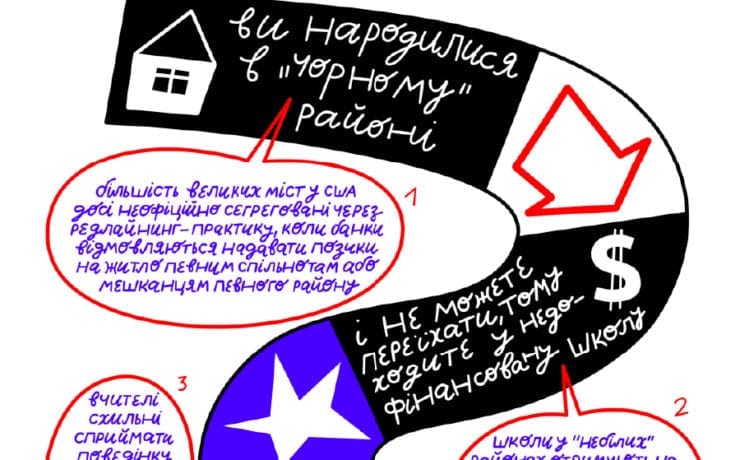 ви народилися
в „чорному"
районі
1
більшість великих міст у сша
досі неофіційно сегреговані через
редлайнінг-практику, коли банки
відмовляються надавати позики
на житло певним спільнотам або
мешканцям певного району
$
і не можете
переїхати, тому
ходите у недо-
фінансовану школу
3
вчителі
схильні
сприймати
поведінку
2
школи у "небілих"
районах отримують на